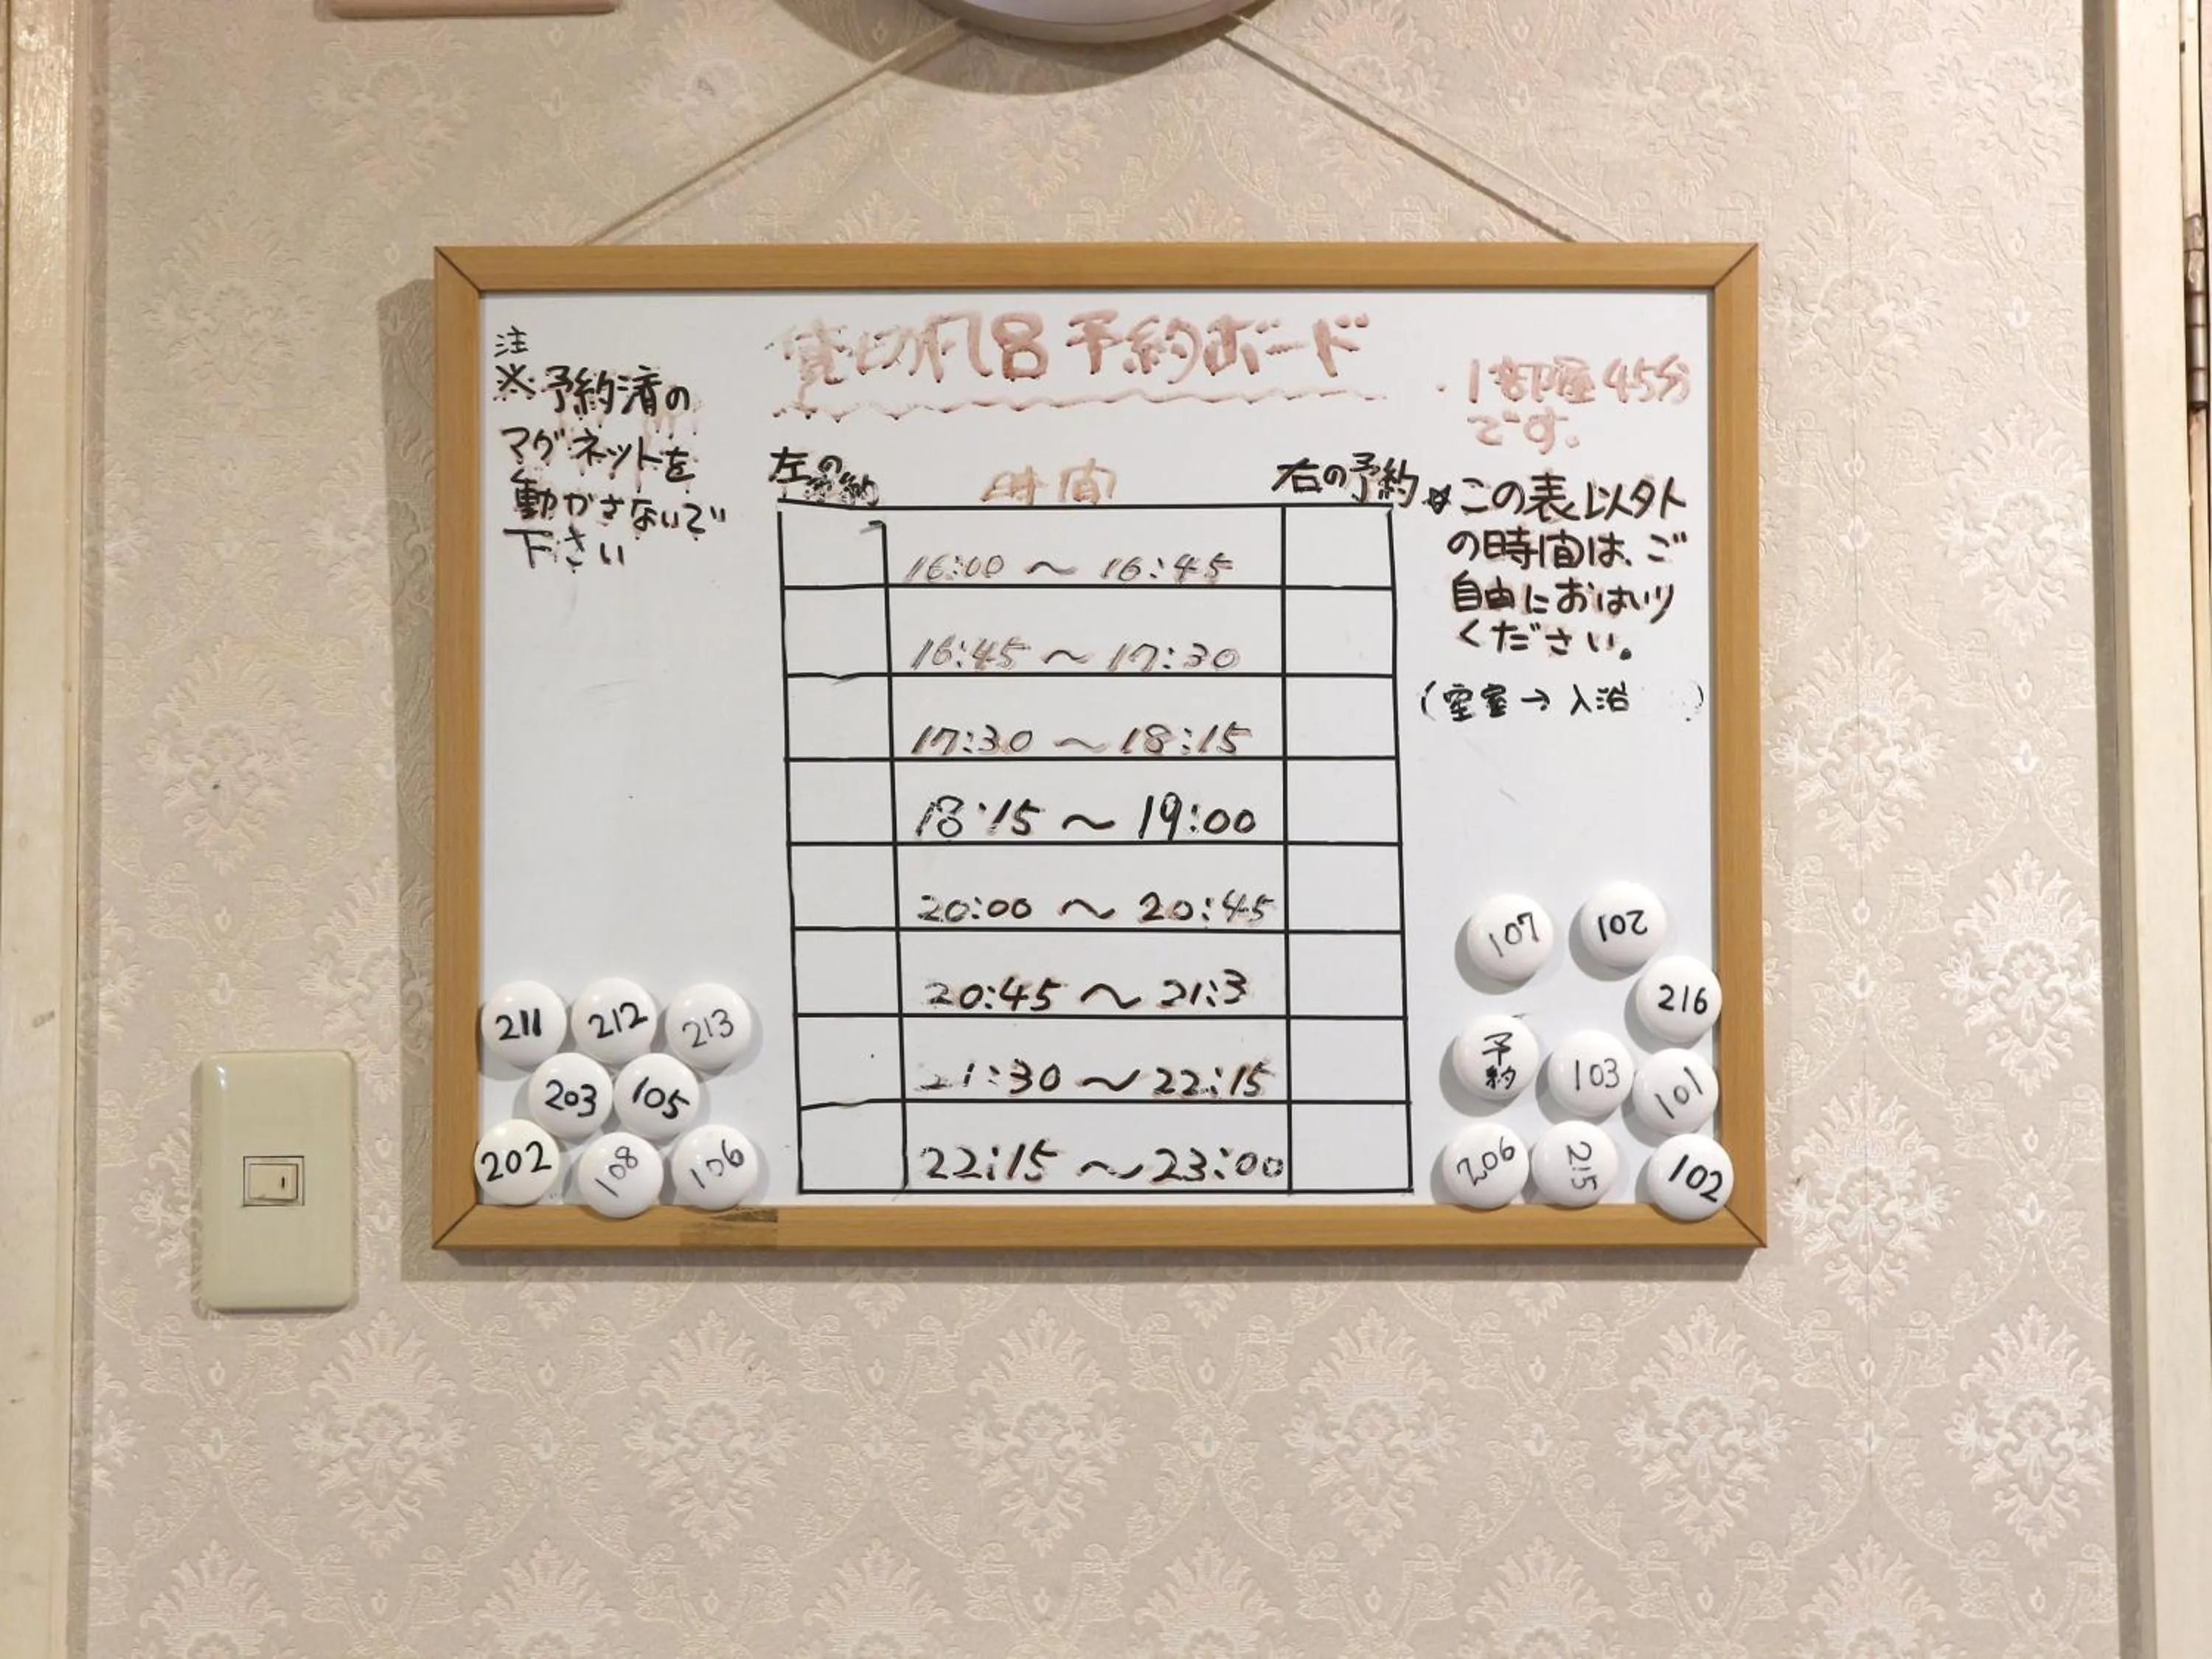 貸切風呂予約ボード
注
※予約済の
マグネットを
動かさないで
下さい
・1部屋45分
です。
左の予約
時間
右の予約
☆この表以外
の時間は、ご
自由におはいり
ください。
(空室→入浴 )
16:00 〜 16:45
16:45 〜 17:30
17:30 〜 18:15
18:15 〜 19:00
20:00 〜 20:45
20:45 〜 21:3
21:30 〜 22:15
22:15 〜 23:00
211 212 213
203 105
202 108 106
107 102
216
予約 103 101
206 215 102